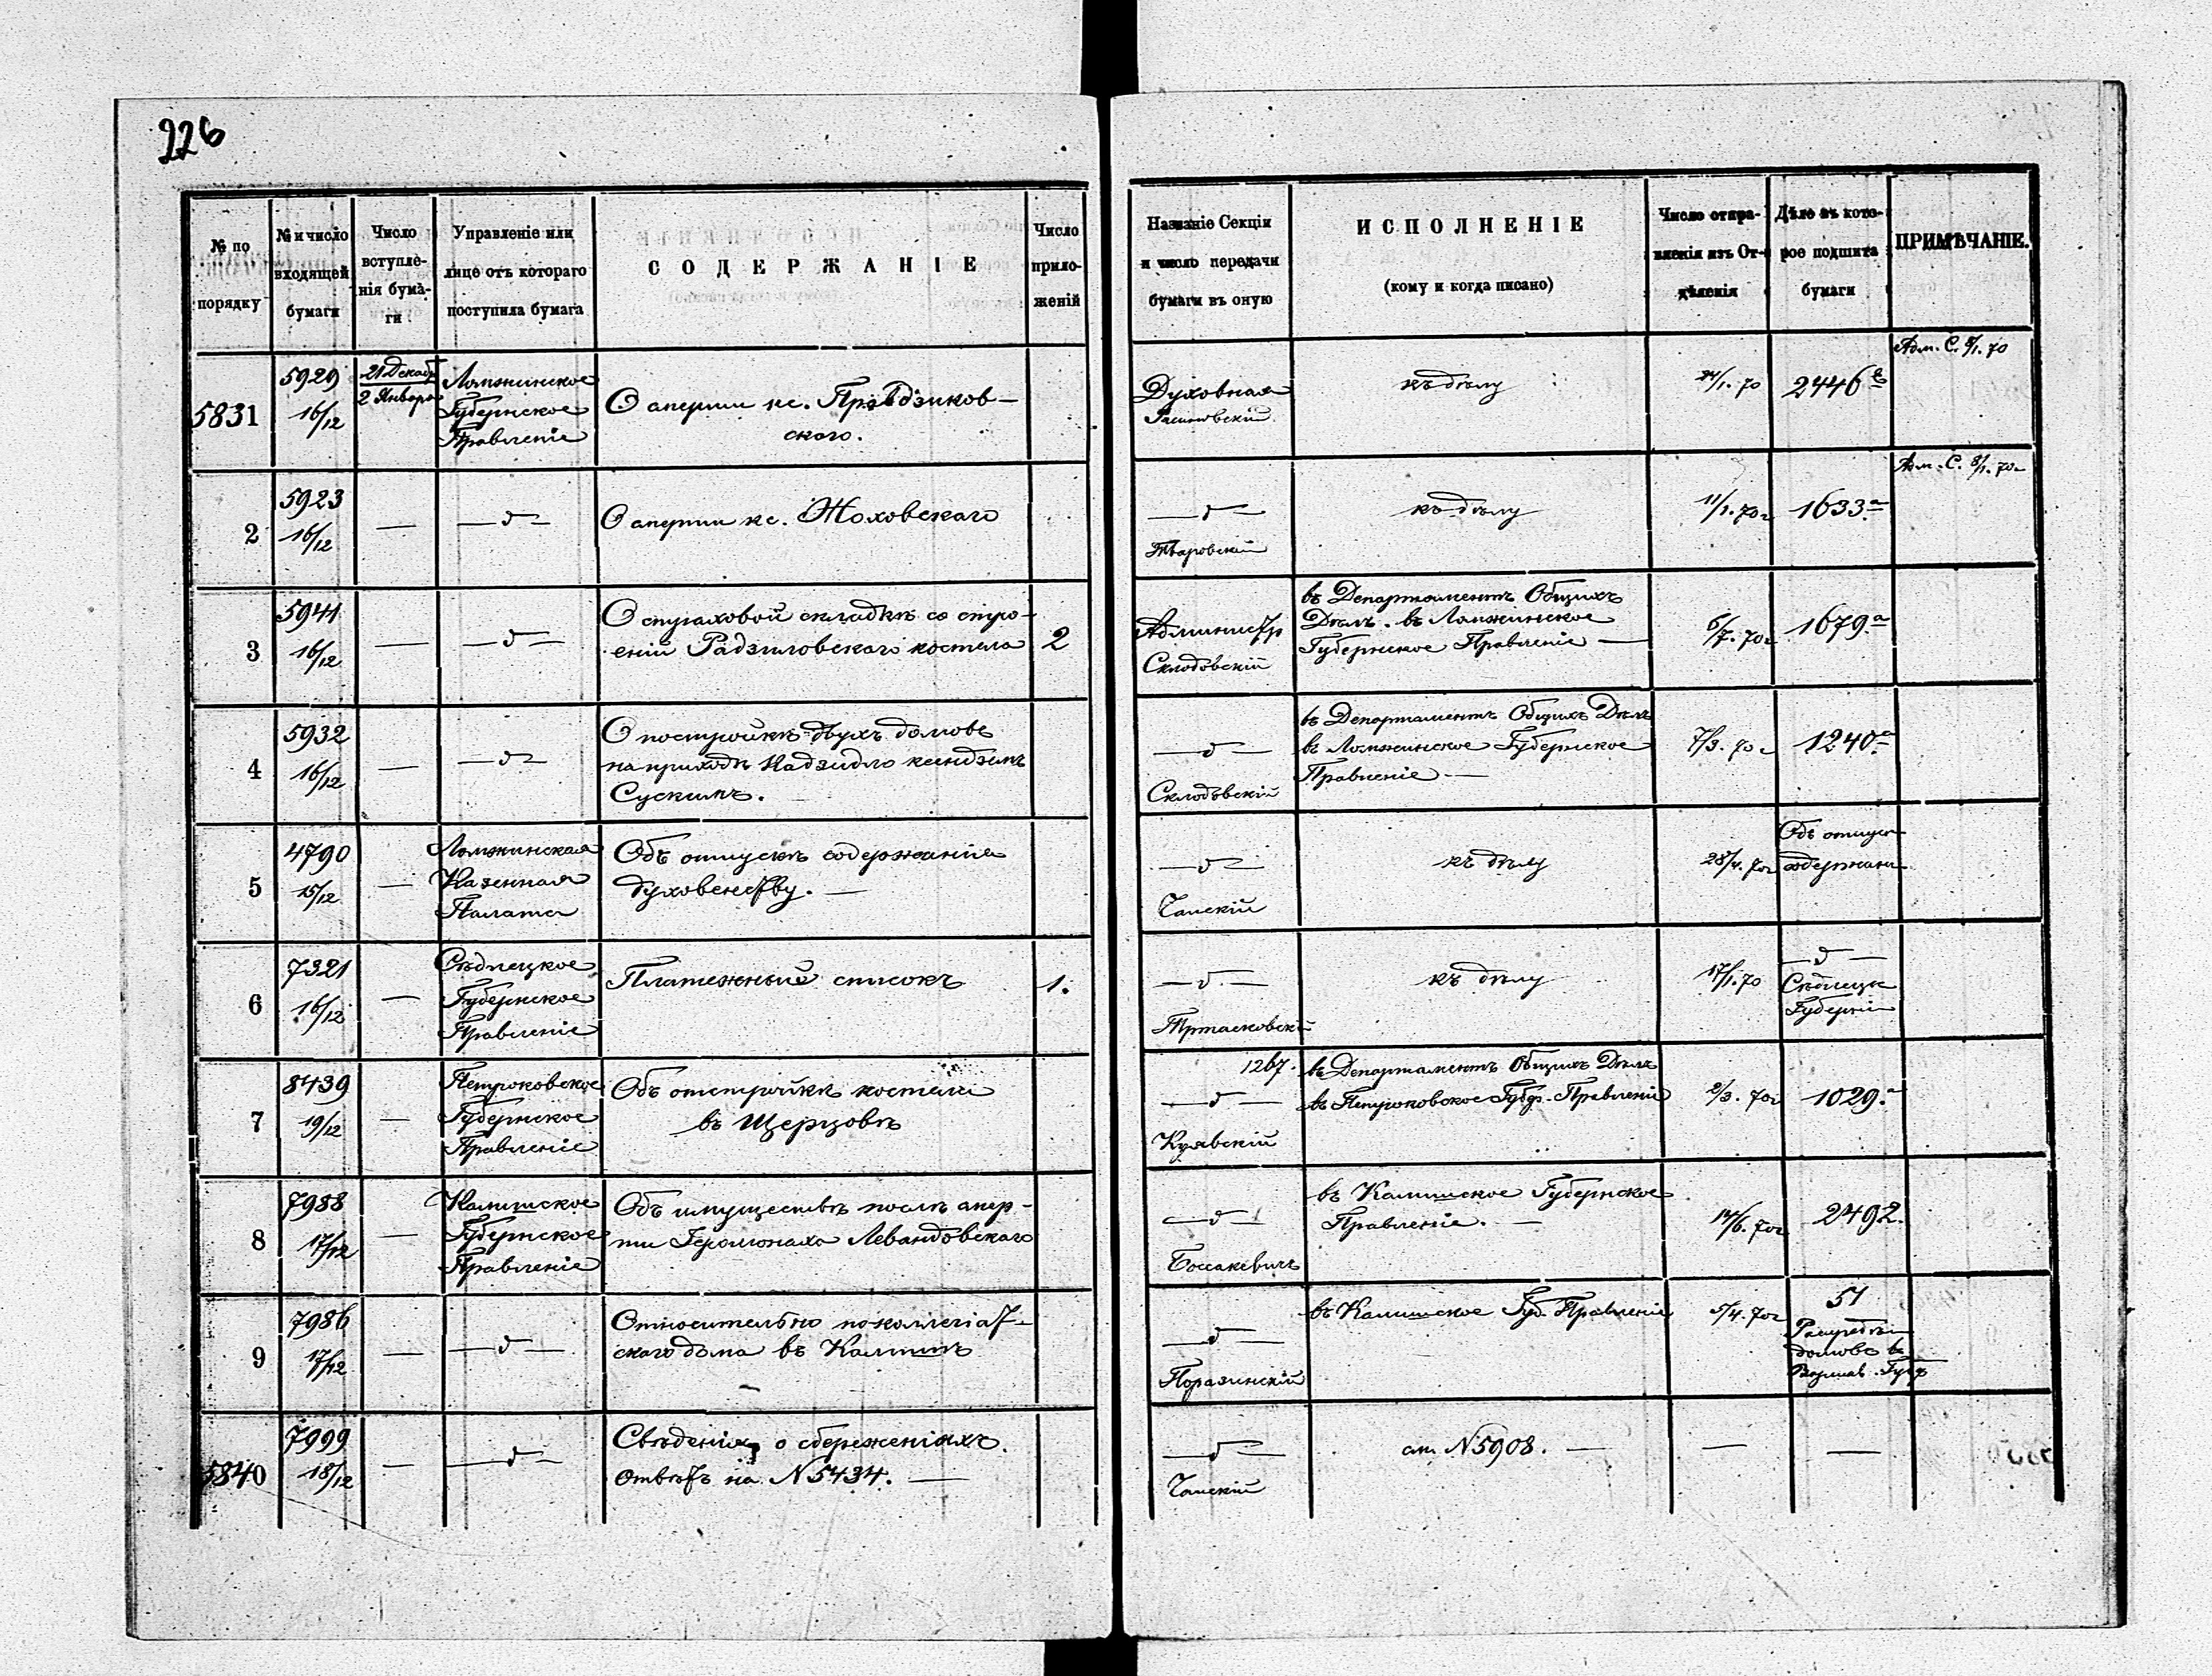 226
№ по порядку
№ и число входящей бумаги
Число вступле-нія бума-ги
Управленіе или лице отъ котораго поступила бумага
СОДЕРЖАНІЕ
Число прило-женій
Названіе Секціи и число передачи бумаги въ оную
ИСПОЛНЕНІЕ
(кому и когда писано)
Число отпра-вленія изъ От-дѣленія
Дѣло въ кото-рое подшита бумаги
ПРИМѢЧАНІЕ.
5831
5929
16/12
21 Декаб
2 Января
Ломжинское
Губернское
Правленіе
О аперти кс. Правдзиков-
скаго.
Духовная
къ дѣлу
2446
Адм. С. 8/1. 70
2
5923
16/12
—
—д—
О аперти кс. Жоховскаго
—д—
къ дѣлу
11/1. 70г
1633а
Адм. С. 8/1. 70г
3
5941
16/12
—
—д—
О страховой складкѣ со стро-
еній Радзиловскаго костела
2
Администр
Склодовскій
въ Департаментъ Общихъ
Дѣлъ. въ Ломжинское
Губернское Правленіе —
6/7. 70г
1679а
4
5932
16/12
—
—д—
О постройкѣ двухъ домовъ
на приходѣ Кадзидло ксендзомъ
Сускимъ.
—д—
Склодовскій
въ Департаментъ Общихъ Дѣлъ
въ Ломжинское Губернское
Правленіе —
7/3. 70г
1240а
5
4790
15/12
—
Ломжинская
Казенная
Палата
Объ отпускѣ содержанія
духовенству. —
—д—
Чамскій
къ дѣлу
28/4. 70г
Объ отпуск
содержан
6
7321
16/12
—
Сѣдлецкое
Губернское
Правленіе
Платежный списокъ
1.
—д—
къ дѣлу
17/1. 70
—д—
Сѣдлецк
Губерніи
7
8439
19/12
—
Петроковское
Губернское
Правленіе
Объ отстройкѣ костела
въ Щерцовѣ
1267.
—д—
Куявскій
въ Департаментъ Общихъ Дѣлъ
въ Петроковское Губер. Правленіе
2/3. 70г
1029а
8
7988
17/12
—
Калишское
Губернское
Правленіе
Объ имуществѣ послѣ апер-
ти Іеромонаха Левандовскаго
—д—
въ Калишское Губернское
Правленіе. —
14/6. 70г
2492.
9
7986
17/12
—
—д—
Относительно поколлегіат-
скаго дома въ Калишѣ
—д—
Поразинскій
въ Калишское Губ. Правленіе
5/4. 70г
51
домовъ въ
5840
7999
18/12
—
—д—
Свѣденія о сбереженіяхъ.
Отвѣтъ на N 5434. —
—д—
Чамскій
см. N 5908. —
—
—